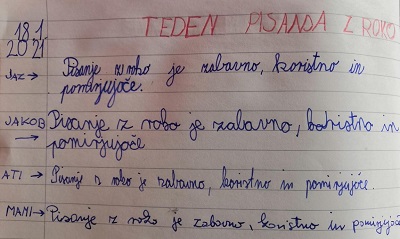 TEDEN PISANJA Z ROKO
18.1
2021
JAZ → Pisanje z roko je zabavno, koristno in
pomirjujoče.
JAKOB → Pisanje z roko je zabavno, koristno in
pomirjujoče
ATI → Pisanje z roko je zabavno, koristno in pomirjujoče.
MAMI → Pisanje z roko je zabavno, koristno in pomirjujoče